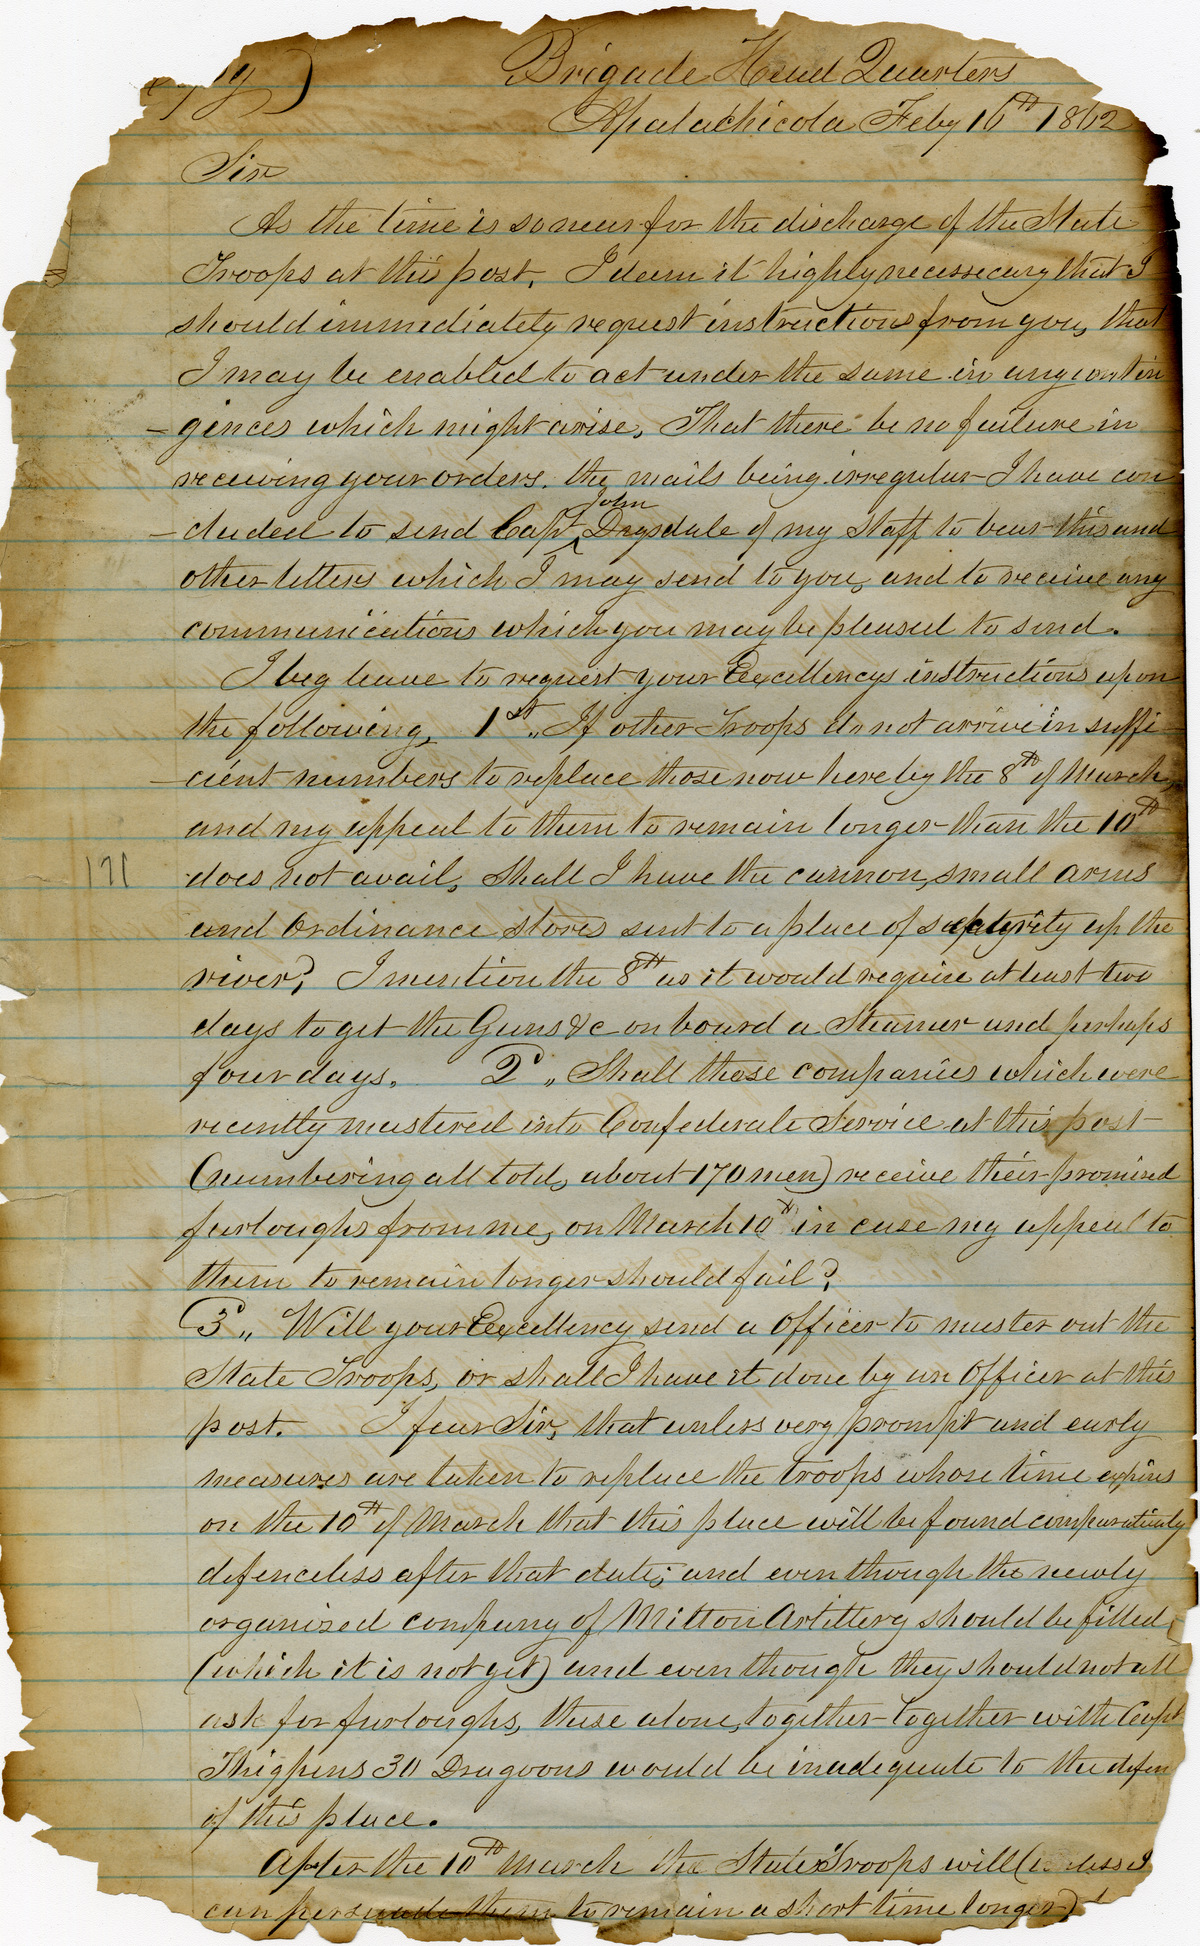 Brigade Head Quarters
Apalachicola Feby 16th 1862
Sir
As the time is so near for the discharge of the State
Troops at this post, I deem it highly necessecary that I
should immediately request instructions from you, that
I may be enabled to act under the same in any contin
-gences which might arise, That there be no failure in
receiving your orders. the mails being irregular I have con
John
-cluded to send Capt Drysdale of my Staff to bear this and
other letters which I may send to you, and to receive any
communications which you may be pleased to send.
I beg leave to request your Excellencys instructions upon
the following, 1st " If other Troops do not arrive in suffi-
-cient numbers to replace those now here by the 8th of March,
and my appeal to them to remain longer than the 10th
does not avail, Shall I have the cannon, small arms
171
and Ordinance stores sent to a place of up the
river? I mention the 8th as it would require at least two
days to get the Guns &c on board a Steamer and perhaps
four days. 2d " Shall those companies which were
recently mustered into Confederate Service at this post
(numbering all told, about 170 men) receive their promised
furloughs from me, on March 10th in case my appeal to
them to remain longer should fail?
3d " Will your Excellency send a Officer to muster out the
State Troops, or shall I have it done by an Officer at this
post. I fear Sir, that unless very prompt and early
measures are taken to replace the troops whose time expires
on the 10th of March that this place will be found comparatively
defenceless after that date; and even though the newly
organized company of Milton Artillery should be filled,
(which it is not yet) and even though they should not all
ask for furloughs, these alone, together together with Capt
Thigpens 30 Dragoons would be inadequate to the defen
of this place.
After the 10th March the State Troops will (unless I
can persuade them to remain a short time longer)